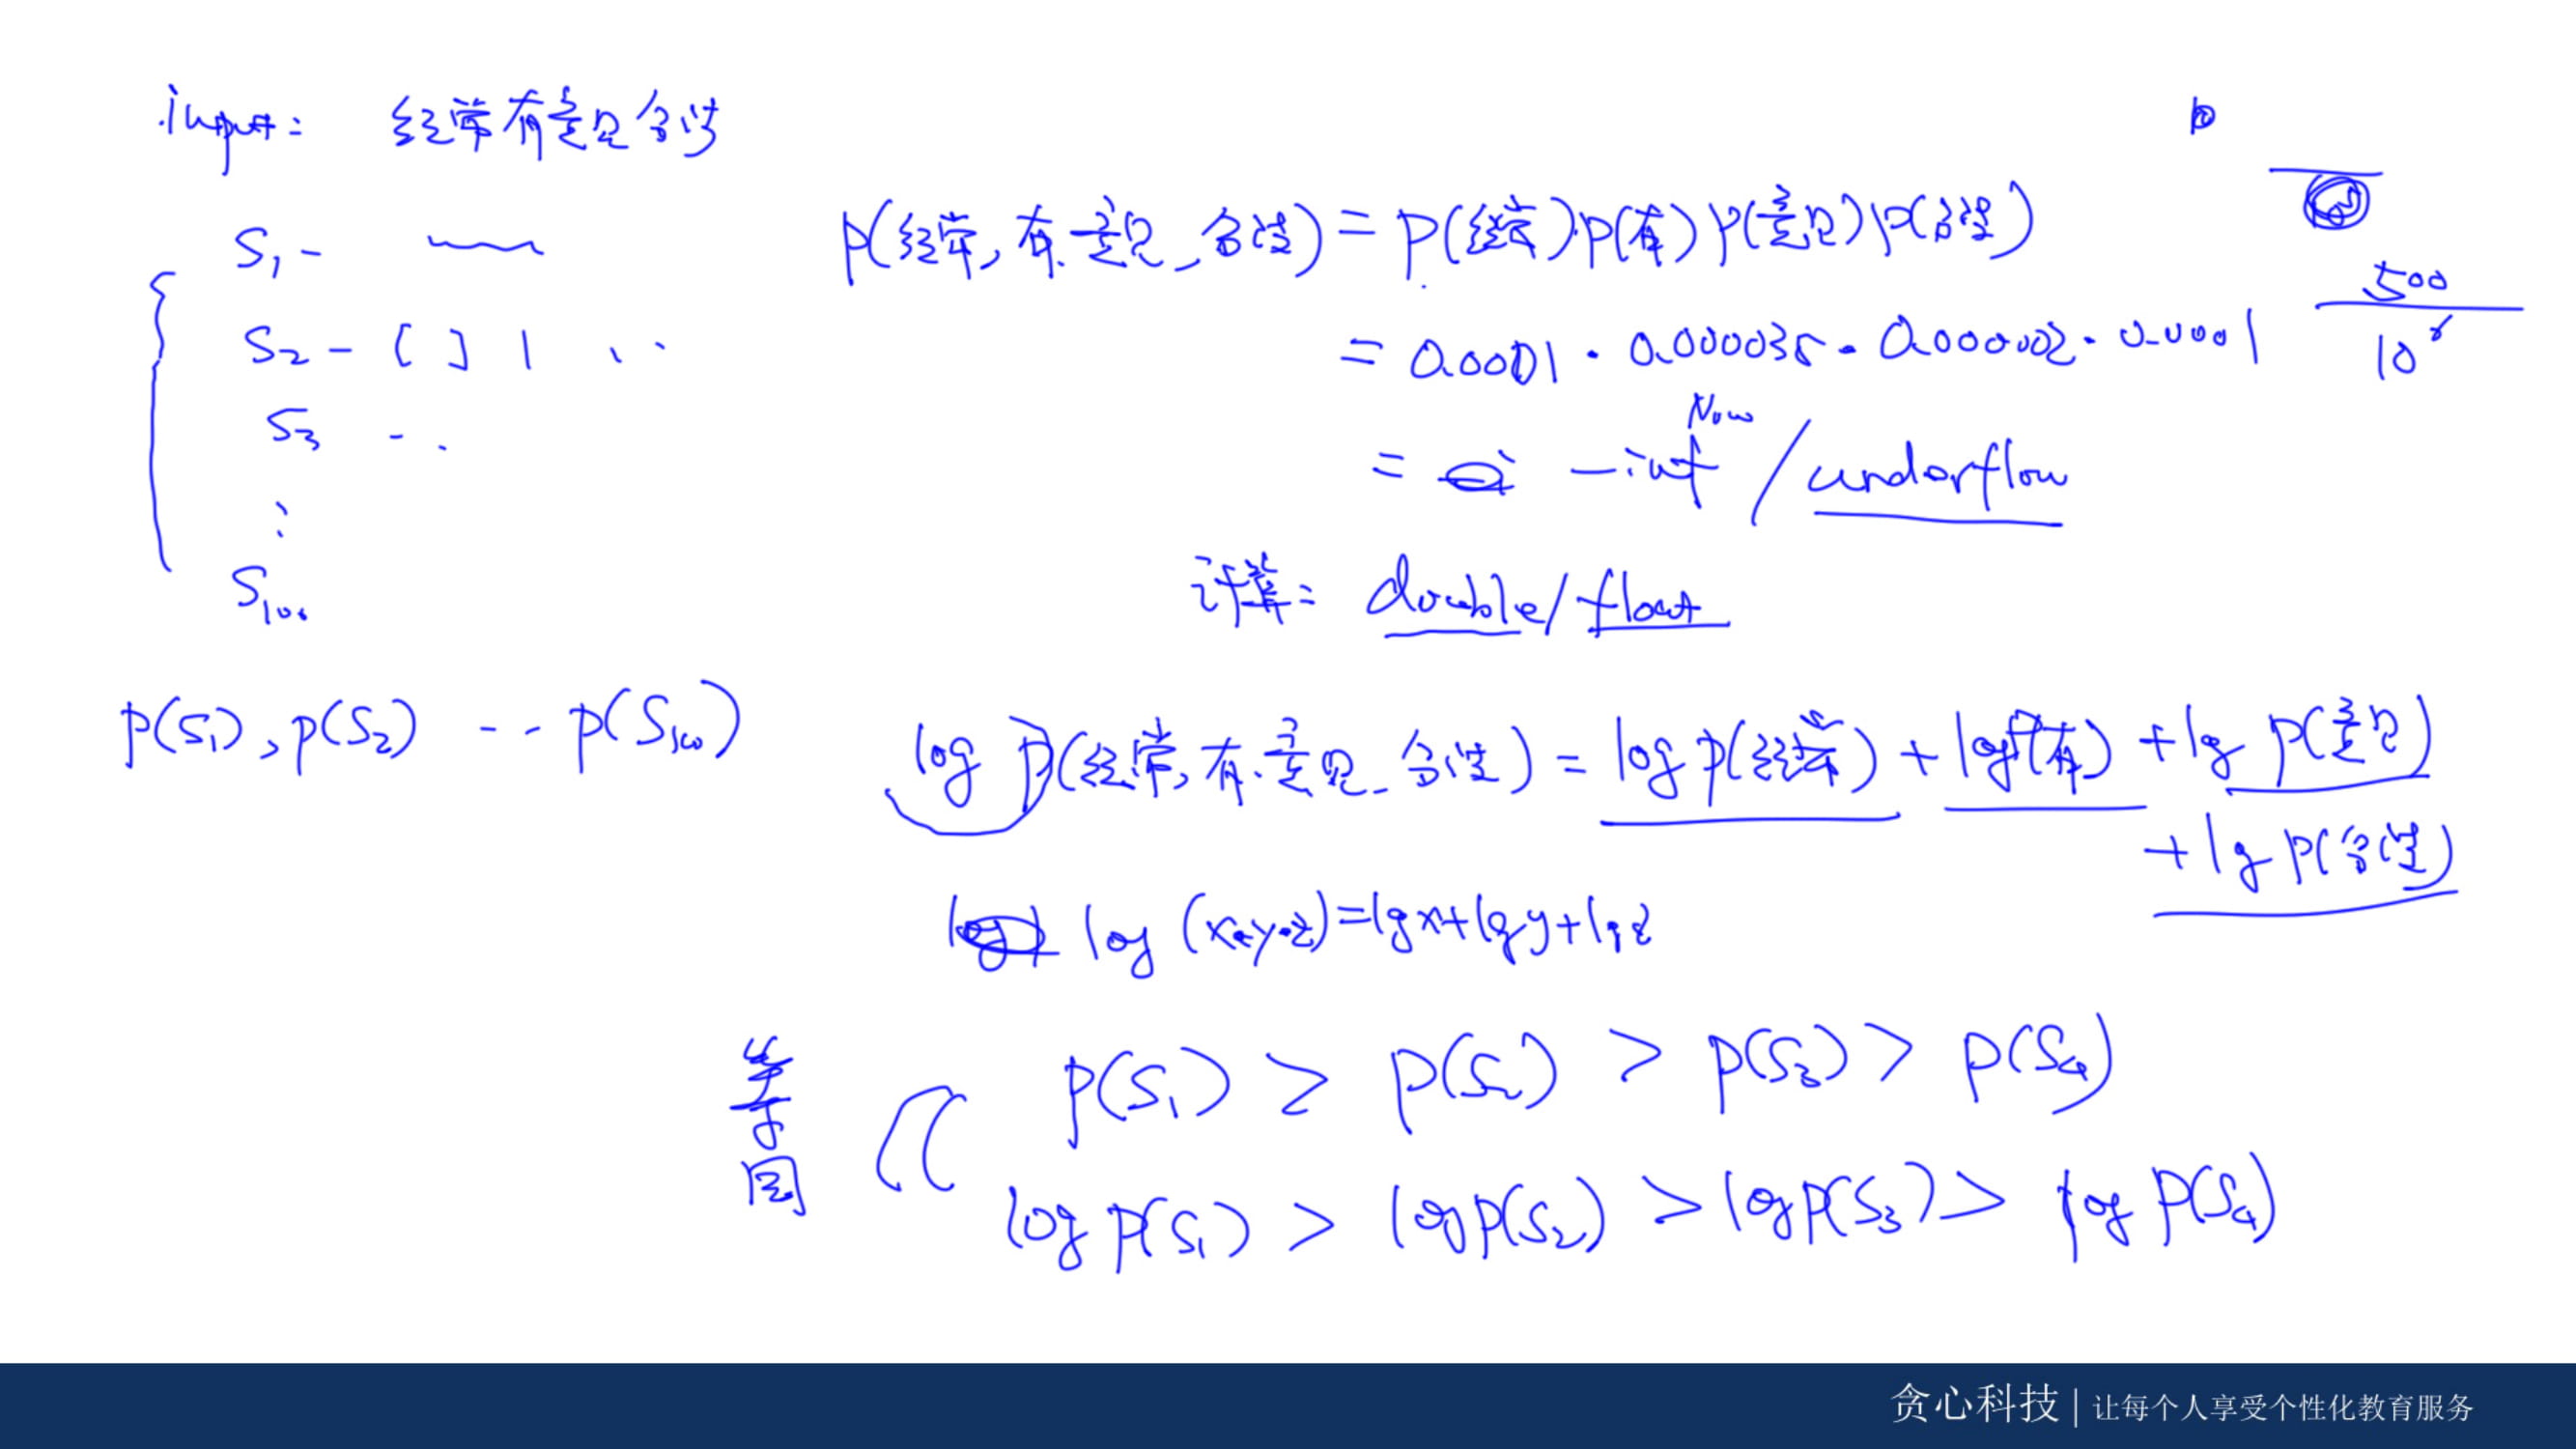 input: 经常有意见分歧
S₁ -
S₂ - [ ] | ..
S₃ ..
⋮
S₁₀₀
p(S₁), p(S₂) ... p(S₁₀₀)
p(经常, 有, 意见, 分歧) = p(经常)·p(有) p(意见) p(分歧)
= 0.0001 · 0.000035 · 0.000002 · 0.0001
500
= -inf / underflow
计算: double/float
log p(经常, 有, 意见, 分歧) = log p(经常) + log P(有) + log p(意见)
+ log p(分歧)
log (x·y·z) = log x + log y + log z
等
同
p(S₁) ≥ p(S₂) > p(S₃) > p(S₄)
log p(S₁) > log p(S₂) > log p(S₃) > log p(S₄)
贪心科技 | 让每个人享受个性化教育服务